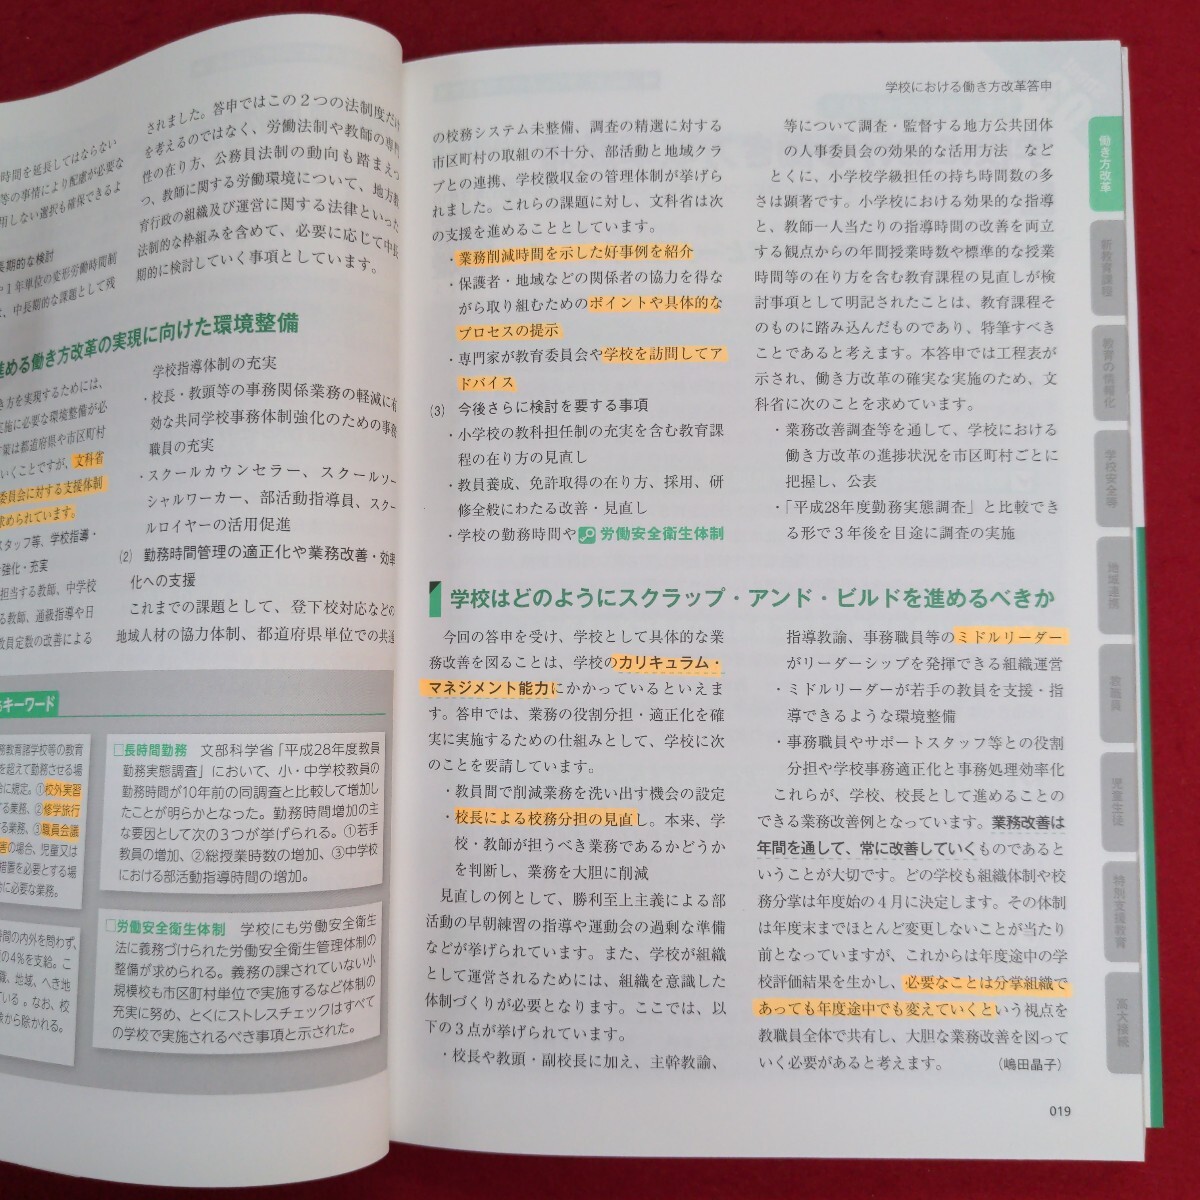 時間を延長してはならない
等の事情により配慮が必要な
用しない選択も確保できるよ
長期的な検討
1年単位の変形労働時間制
、中長期的な課題として残
されました。答申ではこの2つの法制度だけ
を考えるのではなく、労働法制や教師の専門
性の在り方、公務員法制の動向も踏まえつ
つ、教師に関する労働環境について、地方教
育行政の組織及び運営に関する法律といった
法制的な枠組みを含めて、必要に応じて中長
期的に検討していく事項としています。
進める働き方改革の実現に向けた環境整備
き方を実現するためには、
実施に必要な環境整備が必
業は都道府県や市区町村
いくことですが、文科省
委員会に対する支援体制
求められています。
スタッフ等、学校指導・
強化・充実
担当する教師、中学校
る教師、通級指導や日
教員定数の改善による
学校指導体制の充実
・校長・教頭等の事務関係業務の軽減に有
効な共同学校事務体制強化のための事務
職員の充実
・スクールカウンセラー、スクールソー
シャルワーカー、部活動指導員、スクー
ルロイヤーの活用促進
(2) 勤務時間管理の適正化や業務改善・効率
化への支援
これまでの課題として、登下校対応などの
地域人材の協力体制、都道府県単位での共通
るキーワード
務教育諸学校等の教育
を超えて勤務させる場
合に規定。①校外実習
する業務、②修学旅行
する業務、③職員会議
害の場合、児童又は
措置を必要とする場
合に必要な業務。
時間の内外を問わず、
の4%を支給。こ
職、地域、へき地
ている。なお、校
象から除かれる。
□長時間勤務 文部科学省「平成28年度教員
勤務実態調査」において、小・中学校教員の
勤務時間が10年前の同調査と比較して増加し
たことが明らかとなった。勤務時間増加の主
な要因として次の3つが挙げられる。①若手
教員の増加、②総授業時数の増加、③中学校
における部活動指導時間の増加。
□労働安全衛生体制 学校にも労働安全衛生
法に義務づけられた労働安全衛生管理体制の
整備が求められる。義務の課されていない小
規模校も市区町村単位で実施するなど体制の
充実に努め、とくにストレスチェックはすべて
の学校で実施されるべき事項と示された。
学校における働き方改革答申
の校務システム未整備、調査の精選に対する
市区町村の取組の不十分、部活動と地域クラ
ブとの連携、学校徴収金の管理体制が挙げら
れました。これらの課題に対し、文科省は次
の支援を進めることとしています。
・業務削減時間を示した好事例を紹介
・保護者・地域などの関係者の協力を得な
がら取り組むためのポイントや具体的な
プロセスの提示
・専門家が教育委員会や学校を訪問してア
ドバイス
(3) 今後さらに検討を要する事項
・小学校の教科担任制の充実を含む教育課
程の在り方の見直し
・教員養成、免許取得の在り方、採用、研
修全般にわたる改善・見直し
・学校の勤務時間や 労働安全衛生体制
等について調査・監督する地方公共団体
の人事委員会の効果的な活用方法 など
とくに、小学校学級担任の持ち時間数の多
さは顕著です。小学校における効果的な指導
と、教師一人当たりの指導時間の改善を両立
する観点からの年間授業時数や標準的な授業
時間等の在り方を含む教育課程の見直しが検
討事項として明記されたことは、教育課程そ
のものに踏み込んだものであり、特筆すべき
ことであると考えます。本答申では工程表が
示され、働き方改革の確実な実施のため、文
科省に次のことを求めています。
・業務改善調査等を通して、学校における
働き方改革の進捗状況を市区町村ごとに
把握し、公表
・「平成28年度勤務実態調査」と比較でき
る形で3年後を目途に調査の実施
学校はどのようにスクラップ・アンド・ビルドを進めるべきか
今回の答申を受け、学校として具体的な業
務改善を図ることは、学校のカリキュラム・
マネジメント能力にかかっているといえま
す。答申では、業務の役割分担・適正化を確
実に実施するための仕組みとして、学校に次
のことを要請しています。
・教員間で削減業務を洗い出す機会の設定
・校長による校務分担の見直し。本来、学
校・教師が担うべき業務であるかどうか
を判断し、業務を大胆に削減
見直しの例として、勝利至上主義による部
活動の早朝練習の指導や運動会の過剰な準備
などが挙げられています。また、学校が組織
として運営されるためには、組織を意識した
体制づくりが必要となります。ここでは、以
下の3点が挙げられています。
・校長や教頭・副校長に加え、主幹教諭、
指導教諭、事務職員等のミドルリーダー
がリーダーシップを発揮できる組織運営
・ミドルリーダーが若手の教員を支援・指
導できるような環境整備
・事務職員やサポートスタッフ等との役割
分担や学校事務適正化と事務処理効率化
これらが、学校、校長として進めることの
できる業務改善例となっています。業務改善は
年間を通して、常に改善していくものであると
いうことが大切です。どの学校も組織体制や校
務分掌は年度始の4月に決定します。その体制
は年度末までほとんど変更しないことが当たり
前となっていますが、これからは年度途中の学
校評価結果を生かし、必要なことは分掌組織で
あっても年度途中でも変えていくという視点を
教職員全体で共有し、大胆な業務改善を図って
いく必要があると考えます。 (嶋田晶子)
019
働き方改革
新教育課程
教育の情報化
学校安全等
地域連携
教職員
児童生徒
特別支援教育
高大接続